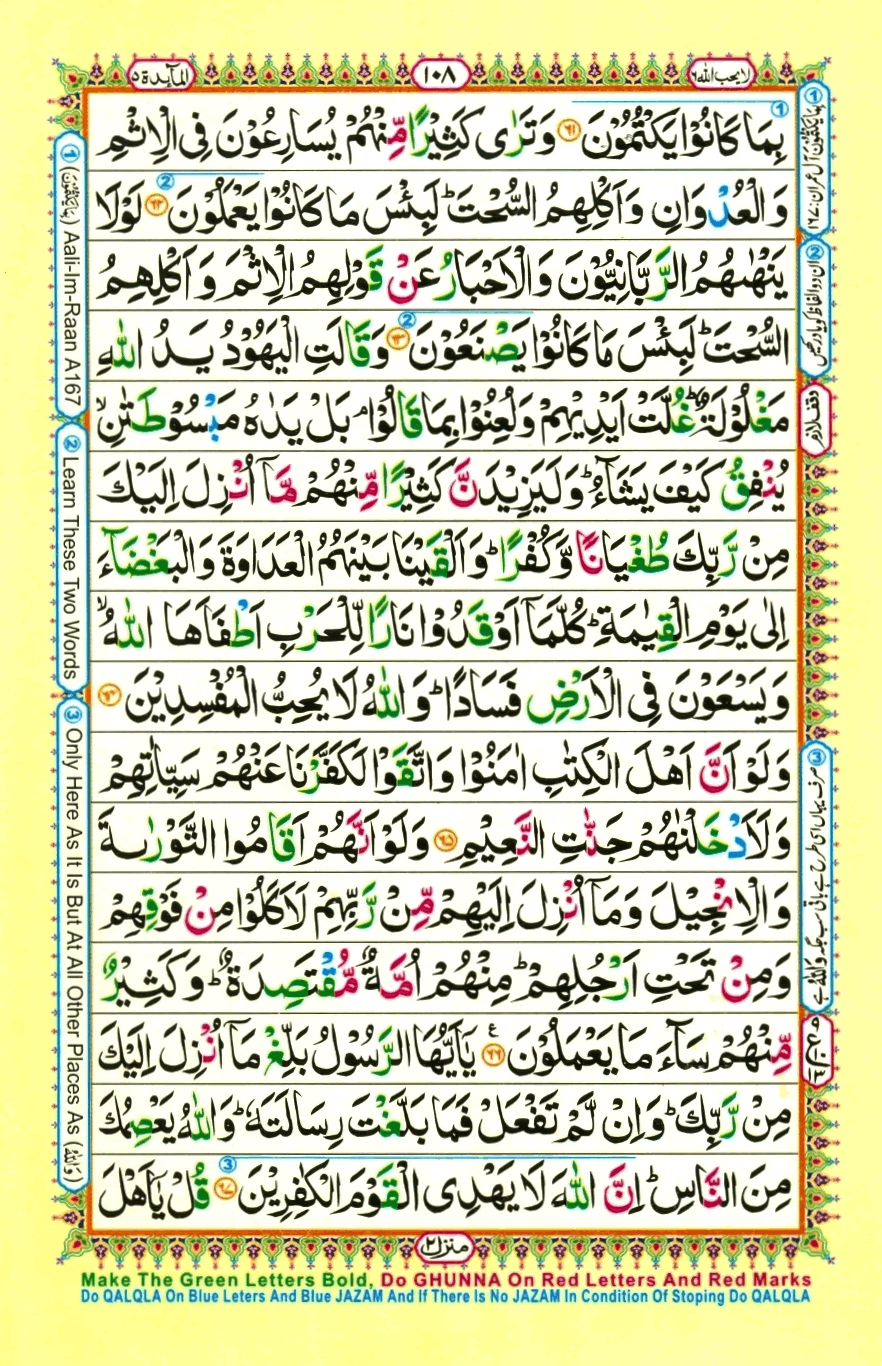 لا يحب الله ٦
١٠٨
المآئدة ٥
بِمَا كَانُوْا يَكْتُمُوْنَ ٦١ وَتَرٰى كَثِيْرًا مِّنْهُمْ يُسَارِعُوْنَ فِى الْاِثْمِ
وَالْعُدْوَانِ وَاَكْلِهِمُ السُّحْتَ ؕ لَبِئْسَ مَا كَانُوْا يَعْمَلُوْنَ ٦٢ لَوْلَا
يَنْهٰىهُمُ الرَّبَّانِيُّوْنَ وَالْاَحْبَارُ عَنْ قَوْلِهِمُ الْاِثْمَ وَاَكْلِهِمُ
السُّحْتَ ؕ لَبِئْسَ مَا كَانُوْا يَصْنَعُوْنَ ٦٣ وَقَالَتِ الْيَهُوْدُ يَدُ اللّٰهِ
مَغْلُوْلَةٌ ؕ غُلَّتْ اَيْدِيْهِمْ وَلُعِنُوْا بِمَا قَالُوْا ۘ بَلْ يَدٰهُ مَبْسُوْطَتٰنِ ۙ
يُنْفِقُ كَيْفَ يَشَآءُ ؕ وَلَيَزِيْدَنَّ كَثِيْرًا مِّنْهُمْ مَّآ اُنْزِلَ اِلَيْكَ
مِنْ رَّبِّكَ طُغْيَانًا وَّكُفْرًا ؕ وَاَلْقَيْنَا بَيْنَهُمُ الْعَدَاوَةَ وَالْبَغْضَآءَ
اِلٰى يَوْمِ الْقِيٰمَةِ ؕ كُلَّمَآ اَوْقَدُوْا نَارًا لِّلْحَرْبِ اَطْفَاَهَا اللّٰهُ ۙ
وَيَسْعَوْنَ فِى الْاَرْضِ فَسَادًا ؕ وَاللّٰهُ لَا يُحِبُّ الْمُفْسِدِيْنَ ٦٤
وَلَوْ اَنَّ اَهْلَ الْكِتٰبِ اٰمَنُوْا وَاتَّقَوْا لَكَفَّرْنَا عَنْهُمْ سَيِّاٰتِهِمْ
وَلَاَدْخَلْنٰهُمْ جَنّٰتِ النَّعِيْمِ ٦٥ وَلَوْ اَنَّهُمْ اَقَامُوا التَّوْرٰىةَ
وَالْاِنْجِيْلَ وَمَآ اُنْزِلَ اِلَيْهِمْ مِّنْ رَّبِّهِمْ لَاَكَلُوْا مِنْ فَوْقِهِمْ
وَمِنْ تَحْتِ اَرْجُلِهِمْ ؕ مِنْهُمْ اُمَّةٌ مُّقْتَصِدَةٌ ؕ وَكَثِيْرٌ
مِّنْهُمْ سَآءَ مَا يَعْمَلُوْنَ ٦٦ ع يٰٓاَيُّهَا الرَّسُوْلُ بَلِّغْ مَآ اُنْزِلَ اِلَيْكَ
مِنْ رَّبِّكَ ؕ وَاِنْ لَّمْ تَفْعَلْ فَمَا بَلَّغْتَ رِسَالَتَهٗ ؕ وَاللّٰهُ يَعْصِمُكَ
مِنَ النَّاسِ ؕ اِنَّ اللّٰهَ لَا يَهْدِى الْقَوْمَ الْكٰفِرِيْنَ ٦٧ قُلْ يٰٓاَهْلَ
① بما يكتمون آل عمران: ١٦٧
② ان دو الفاظ كو ياد ركهيں
وقف لازم
③ صرف يہاں اسى طرح ہے باقى سب جگہ وَاللّٰهُ ہے
① (بِمَا يَكْتُمُوْنَ) Aali-Im-Raan A167
② Learn These Two Words
③ Only Here As It Is But At All Other Places As (وَاللّٰهُ)
منزل ٢
Make The Green Letters Bold, Do GHUNNA On Red Letters And Red Marks
Do QALQLA On Blue Leters And Blue JAZAM And If There Is No JAZAM In Condition Of Stoping Do QALQLA